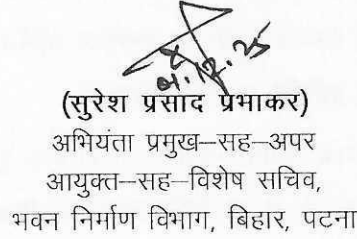 (सुरेश प्रसाद प्रभाकर)
अभियंता प्रमुख–सह–अपर
आयुक्त–सह–विशेष सचिव,
भवन निर्माण विभाग, बिहार, पटना